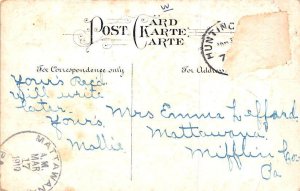 W
POST CARD
KARTE
CARTE
HUNTING
JAN
7
For Correspondence only
For Address
Yours Recd
Will write
later.
Yours,
Mollie
Mrs Emma Lefford
Mattawana
Mifflin Co
Pa
MATTAWANA
A.M.
MAR
17
1912
PA.